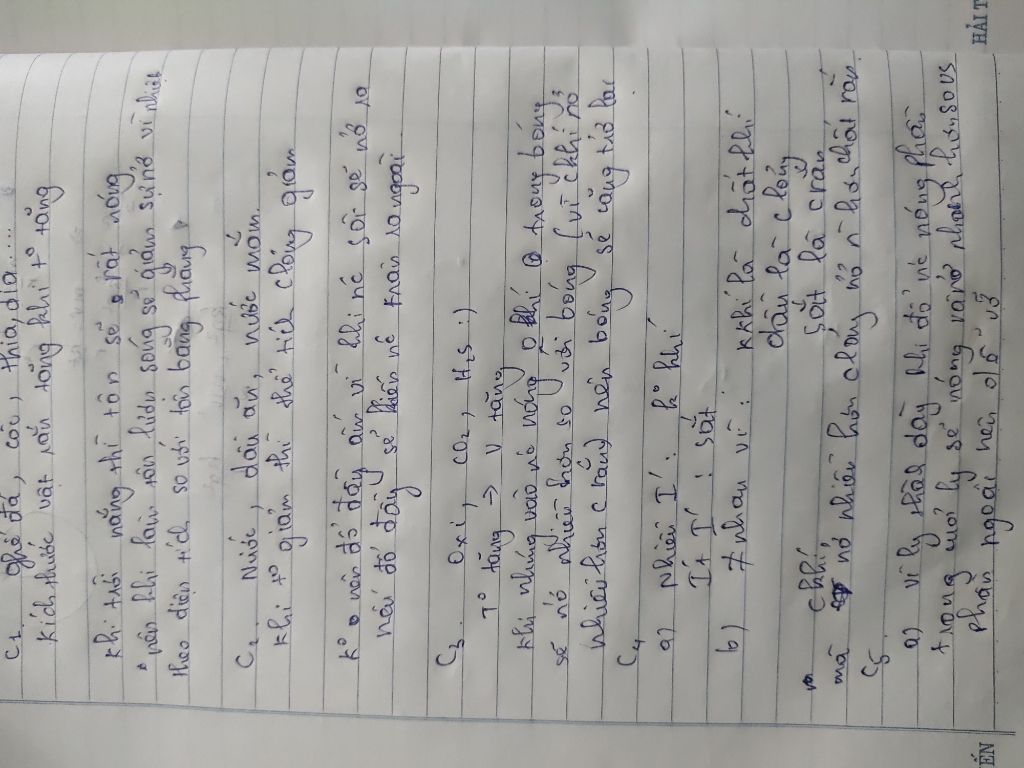 C1 ghế đá, cốc, thìa, dĩa....
Kích thước vật rắn tăng khi t° tăng
Khi trời nắng thì tôn sẽ rất nóng
nên khi làm tôn lượn sóng sẽ giảm sự nở vì nhiệt
theo diện tích so với tôn bằng phẳng
C2 Nước, dầu ăn, nước mắm
Khi t° giảm thì thể tích c lỏng giảm
K° nên đổ đầy ấm vì khi nc sôi sẽ nở ra
nếu đổ đầy sẽ khiến nc tràn ra ngoài
C3 Oxi, CO2, H2S :)
T° tăng → V tăng
Khi nhúng vào nc nóng khí trong bóng
sẽ nở nhiều hơn so với bóng (vì c khí nở
nhiều hơn c rắn) nên bóng sẽ căng trở lại
C4
a) nhiều I': k° khí
Ít I': sắt
b) ≠ nhau vì: Khí là chất khí
dầu là c lỏng
sắt là c rắn
c khí
mà nở nhiều hơn c lỏng nở n hơn chất rắn.
C5
a) vì ly thành dày khi đổ nc nóng phần
trong mới ly sẽ nóng và nở nhanh hơn so vs
phần ngoài nên dễ vỡ
HẢI T
ẾN